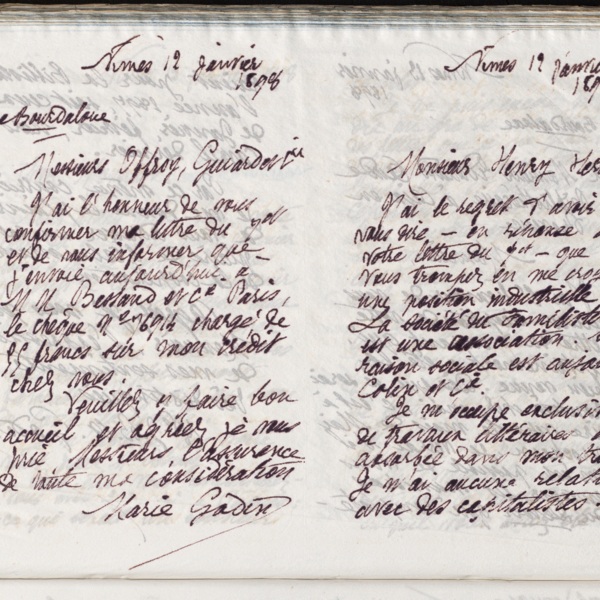 Nîmes 12 janvier
1898
e Bourdaloue
Messieurs Offroy, Guiard et Cie
J'ai l'honneur de vous
confirmer ma lettre du 7 ct
et de vous informer que
j'envoie aujourd'hui à
M M Bertaud et Cie Paris,
le chèque n° 7694 chargé de
francs sur mon crédit
chez vous.
Veuillez y faire bon
accueil et agréer je vous
prie Messieurs l'assurance
de toute ma considération
Marie Godin
Nîmes 12 janvie
189
Monsieur Henry Her
J'ai le regret d'avoir
vous dire – en réponse à
votre lettre du ct – que
vous trompez en me croy
une position industrielle
La Société du Familistè
est une association.
raison sociale est aujou
Colin et Cie.
Je m'occupe exclusiv
de travaux littéraires
absorbée dans mon tra
Je n'ai aucune relat
avec des capitalistes.